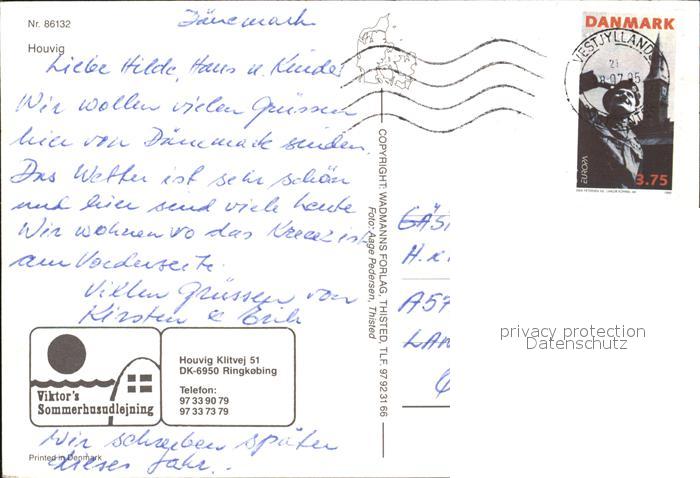 Nr. 86132
Dänemark
Houvig
Liebe Hilde, Hans u. Kinder
Wir wollen vielen Grüssen
hier von Dänemark senden.
Das Wetter ist sehr schön
und hier sind viele Leute
Wir wohnen vo das Kreuz ist
am Vorderseite.
Vielen Grüssen von
Kirsten & Erik
Viktor's
Sommerhusudlejning
Houvig Klitvej 51
DK-6950 Ringkøbing
Telefon:
97 33 90 79
97 33 73 79
Wir schreiben später
dieses Jahr..
Printed in Denmark
COPYRIGHT: WADMANNS FORLAG, THISTED, TLF. 97 92 31 66
Foto: Aage Pedersen, Thisted
DANMARK
VESTJYLLANDS
21
EUROPA
3.75
GÄS
H.
A57
LAN
privacy protection
Datenschutz